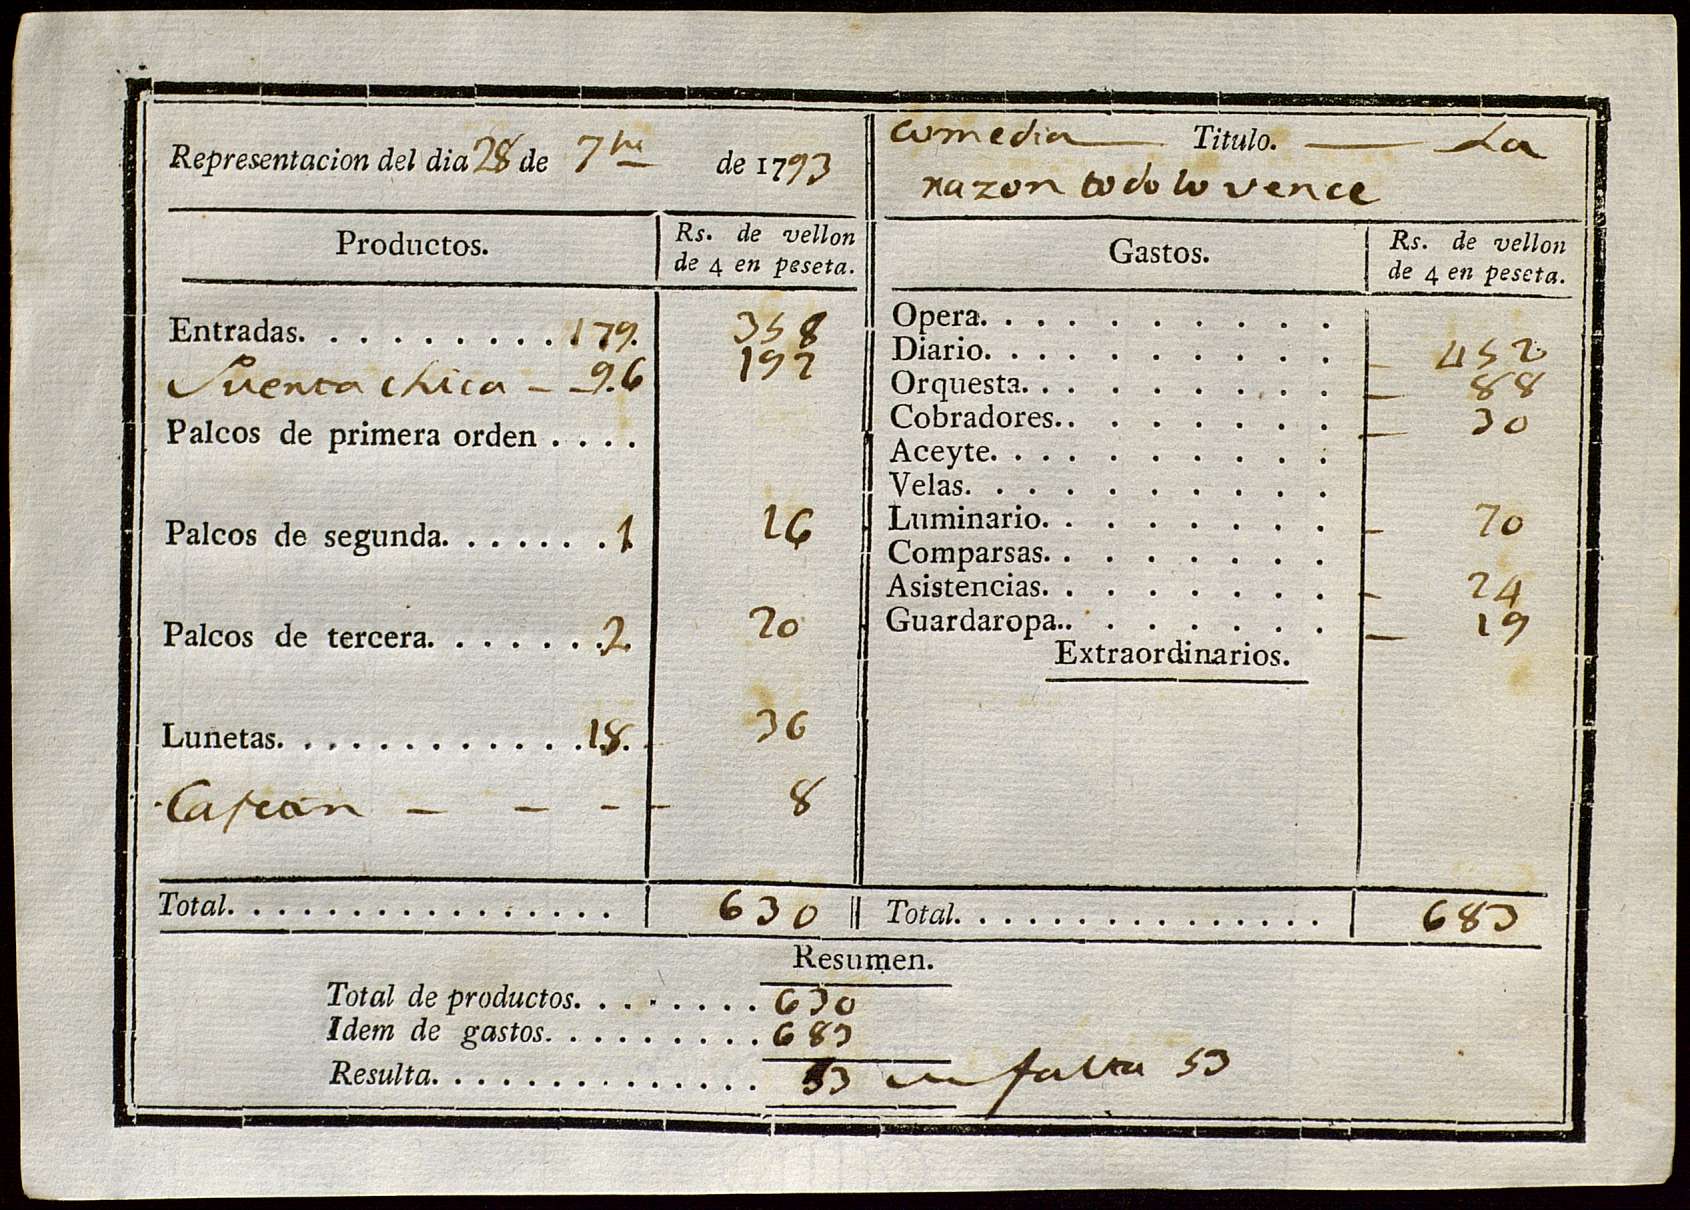 Representacion del dia 28 de 7bre de 1793
comedia Titulo. La
razon todo lo vence
Productos. Rs. de vellon
de 4 en peseta.
Entradas. 179. 358
Puerta chica - 96 192
Palcos de primera orden
Palcos de segunda. 1 16
Palcos de tercera. 2 20
Lunetas. 18. 36
8
Total. 630
Gastos. Rs. de vellon
de 4 en peseta.
Opera.
Diario. 452
Orquesta. 88
Cobradores. 30
Aceyte.
Velas.
Luminario. 70
Comparsas.
Asistencias. 24
Guardaropa. 19
Extraordinarios.
Total. 683
Resumen.
Total de productos. 630
Idem de gastos. 683
Resulta. 53 falta 53